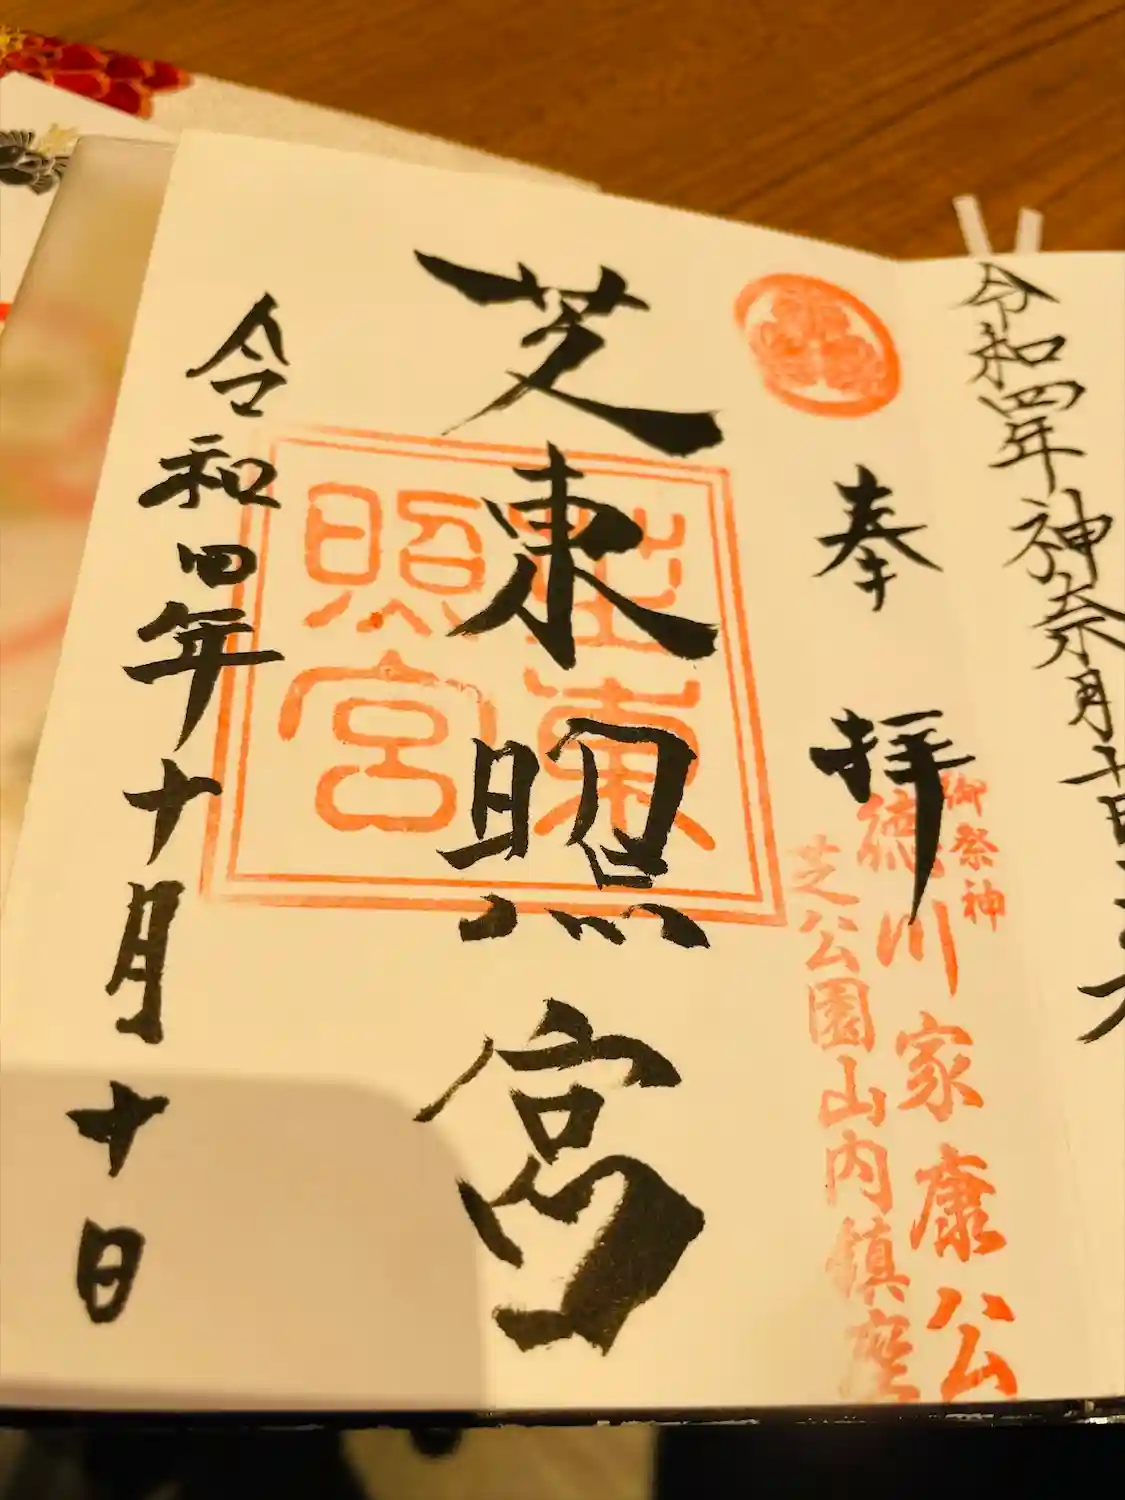 令和四年神奈月十日
奉拝
御祭神
徳川家康公
芝公園山内鎮座
芝東照宮
芝東照宮
令和四年十月十日